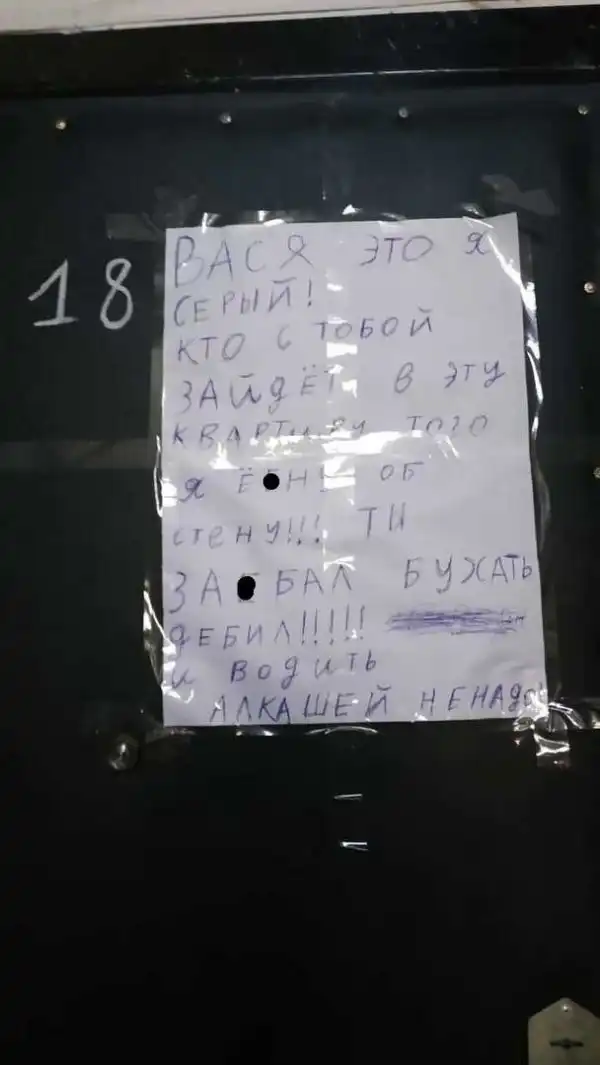 18
ВАСЯ ЭТО Я
СЕРЫЙ!
КТО С ТОБОЙ
ЗАЙДЁТ В ЭТУ
КВАРТИРУ ТОГО
Я Ё●НУ ОБ
СТЕНУ!!! ТИ
ЗА●БАЛ БУХАТЬ
ДЕБИЛ!!!!!
И ВОДИТЬ
АЛКАШЕЙ НЕНАДО!